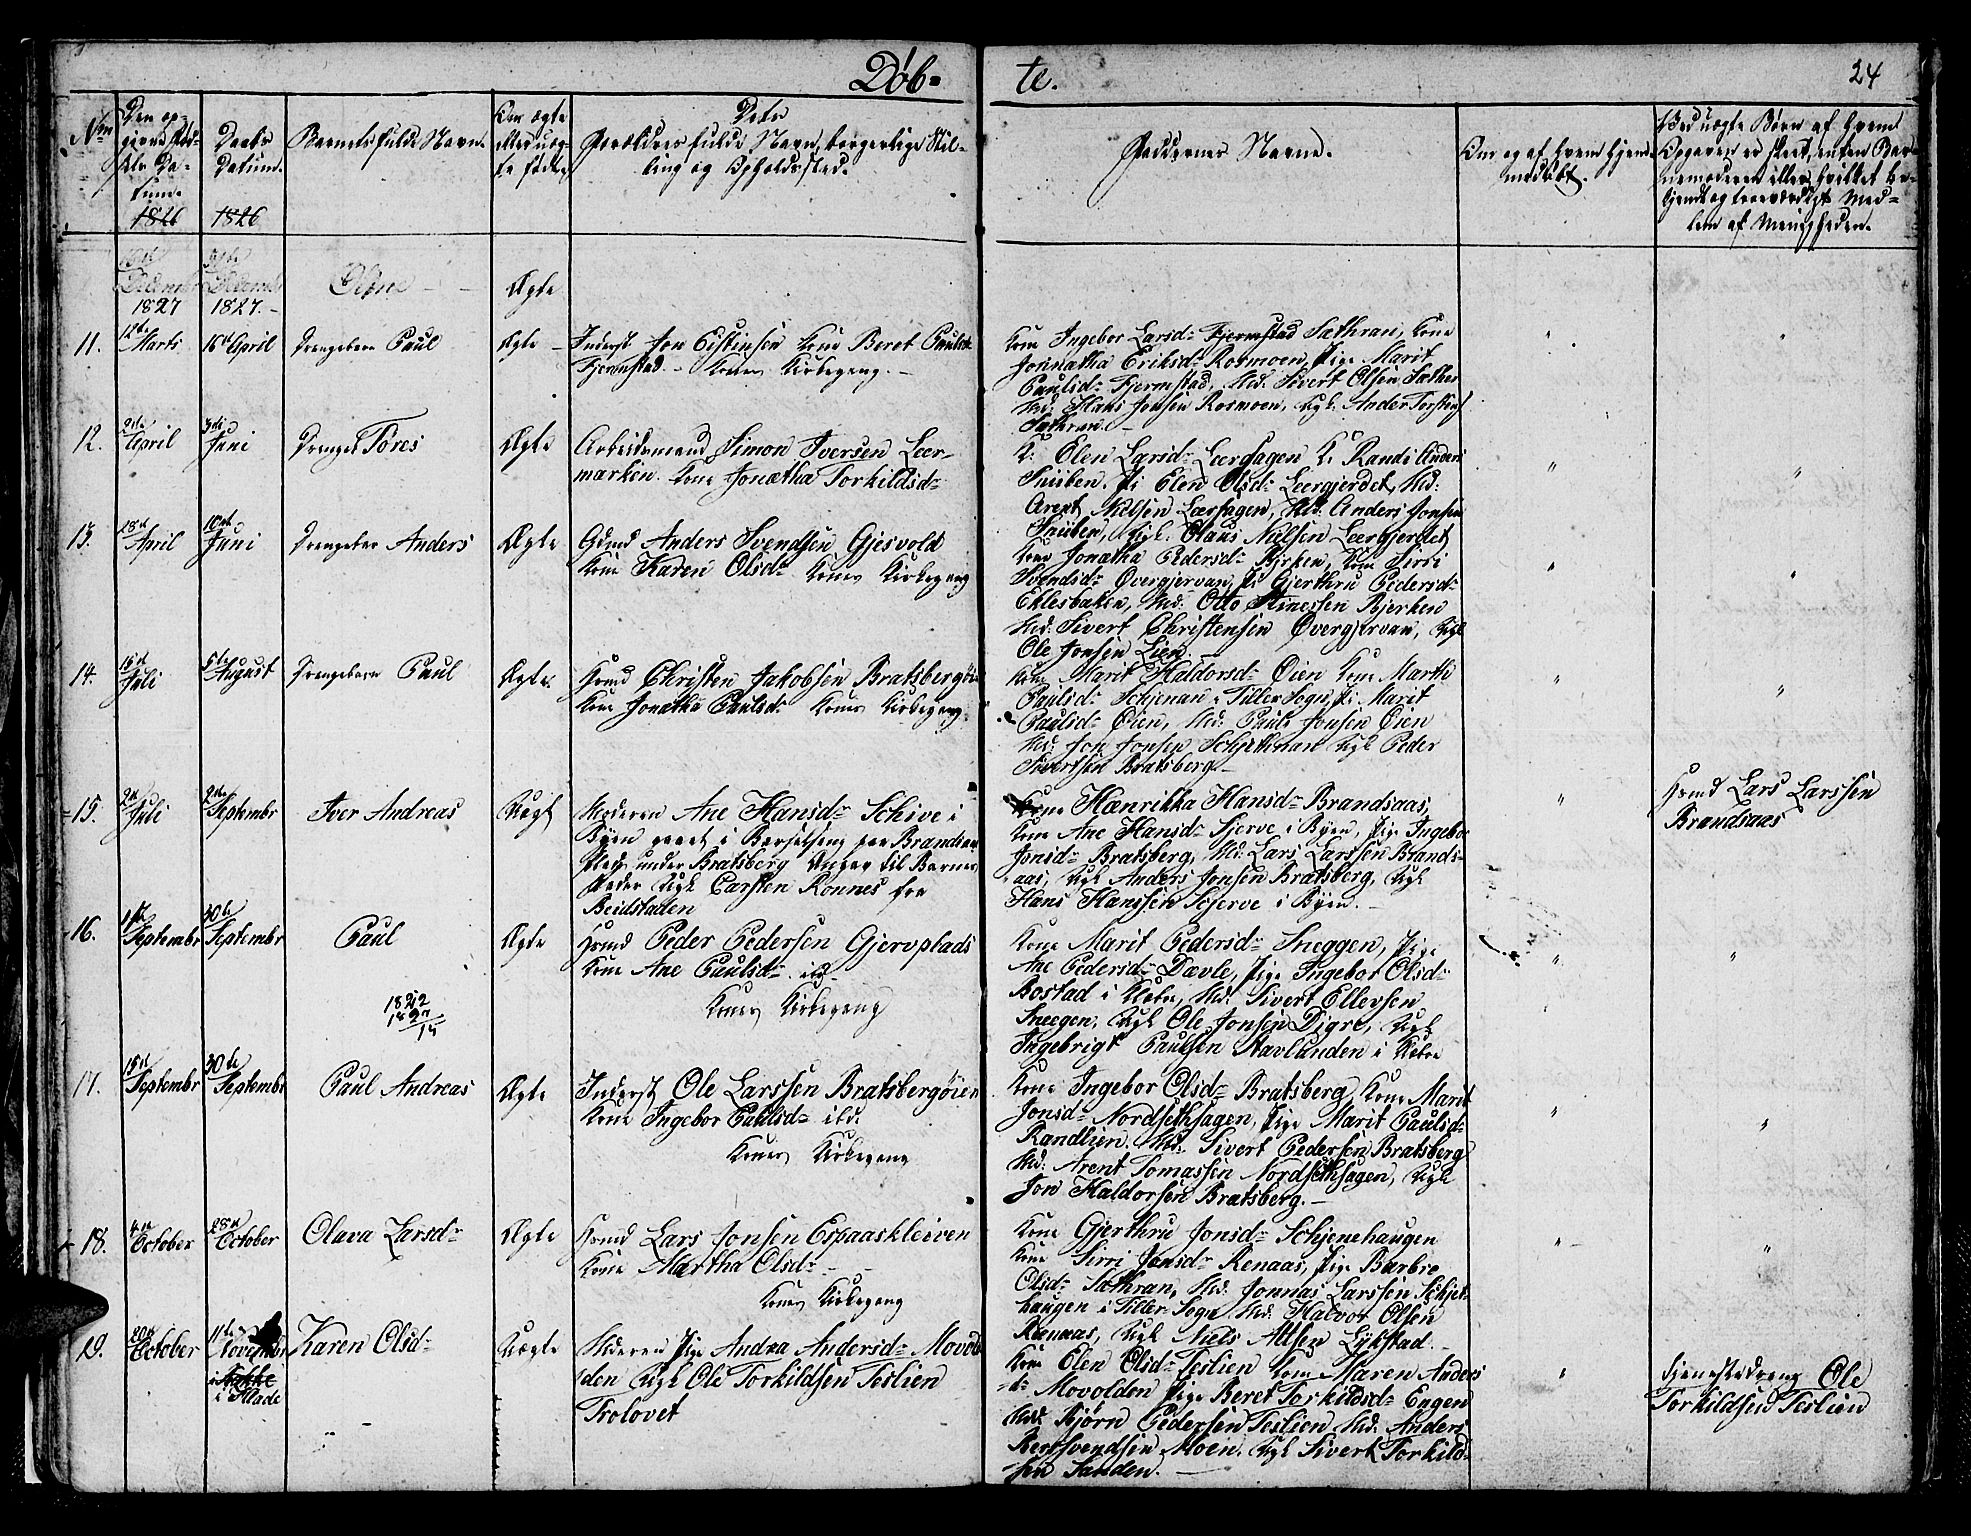 Døb=
te.
24
No
Den op-
givne Fød-
sels Da-
tum.
1826
Daabs
Datum.
1826
Barnets fulde Navn.
Om ægte
eller uæg-
te fødte
Dets
Forældres fulde Navn, borgerlige Stil-
ling og Opholdssted.
Faddernes Navne.
Om og af hvem hjem-
medøbt.
Ved uægte Børn af hvem
Opgaven er skeet, enten Bar-
nemoderen eller hvilket be-
kjendt og troeværdigt Med-
lem af Menigheden.
1827
1827.
Ægte
11.
12te
Marts
16de April
Drengebarn Paul
Ægte
Inderst Jon Eistensen Kone Beret Paulsd
Fjermstad. - Konens Kirkegang. -
Kone Ingebor Larsd: Fjermstad Sæthran, Kone
Jonnatha Eriksd: Rosmoen, Pige Marit
Paulsd: Fjermstad, Md. Sivert Olsen Sæther
Md: Hans Jonsen Rosmoen, Ugk. Ander Torstens
Sæthran. -
12.
2de
April
3de
Juni
Drengeb Töres
Ægte
Arbeidsmand Simon Iversen Leer-
marken. Kone Jonatha Torkildsd:
K: Elen Larsd: Leerhagen K: Randi Anders
Pi Elen Olsd: Leergjerdet, Md:
Arent Nielsen Leerhagen, Md. Anders Jonsen
Ugk: Olaus Nielsen Leergjerdet
13.
28de
April
10de
Juni
Drengebar Anders
Ægte
Gmd Anders Svendsen Gjesvold
Kone Karen Olsd: Konens Kirkegang
Kone Jonatha Pedersd: Bjerken, Kone Sirri
Svendsd: Øvergjervan, Pi Gjerthru Pedersd:
Eklesbaken, Md: Otto Stinessen Bjerken
Md: Sivert Christensen Øvergjervan, Ugk
Ole Jonsen Lien.
14.
15de
Juli
5te
August
Drengebarn Paul
Ægte
Hmd Christen Jakobsen Bratsbergöi
Kone Jonatha Paulsd: Konens Kirkegang.
Kone Marit Haldorsd: Øien Kone Marthe
Paulsd: Schjenan i Tiller Sogn, Pi Marit
Paulsd: Øien, Md: Paul Jonsen Øien
Md: Jon Jonsen Schjethnan Ugk Peder
Sivertsen Bratsberg -
15.
2de
Juli
2de
Septembr
Iver Andreas
Uægt
Moderen Ane Hansd: Schive i
Byen været i Barselseng paa Brandsaas
Plads under Bratsberg Angav til Barnes
Fader Ugk Carsten Ronnes fra
Beidstaden
Kone Hænrikka Hansd: Brandsaas,
Kone Ane Hansd: Sjerve i Byen, Pige Ingebor
Jonsd: Bratsberg, Md: Lars Larssen Brands-
aas, Ugk Anders Jonsen Bratsberg, Ugk
Hans Hanssen Scherve i Byen. -
Hmd Lars Larssen
Brandsaas
16.
1ste
Septembr
30te
Septembr
Paul
Ægte
Hmd Peder Pedersen Gjervplads
Kone Ane Paulsd: ibd
Konens Kirkegang
Kone Marit Pedersd: Sneggen, Pige
Ane Pedersd: Dævle, Pige Ingebor Olsd:
Bostad i Klæbu, Md: Sivert Ellevsen
Sneegen, Ugk Ole Jonsen Digre, Ugk
Ingebrigt Paulsen Ravlunden i Klæbu
17.
15de
Septembr
30te
Septembr
Paul Andreas
Ægte
Inderst Ole Larssen Bratsbergöien
Kone Ingebor Paulsd: ibd.
Konens Kirkegang
Kone Ingebor Olsd: Bratsberg, Kone Marit
Jonsd: Nordsethhagen, Pige Marit Paulsd:
Randlien. Md: Sivert Pedersen Bratsberg
Md: Arent Tomassen Nordsethhagen, Ugk
Jon Haldorsen Bratsberg. -
18.
4de
October
28de
October
Olava Larsd:
Ægte
Hmd Lars Jonsen Espaaskleiven
Kone Martha Olsd: -
Konens Kirkegang
Kone Gjerthru Jonsd: Schjenehaugen
Kone Sirri Jonsd: Renaas, Pige Barbre
Olsd: Sæthran, Md. Jonnas Larssen Schjet-
haugen i Tiller Sogn Md. Halvor Olsen
Renaas, Ugk Niels Altsen Lykstad.
19.
October
11te
Novembr
i Hlade
Karen Olsd:
Uægte
Moderen Pige Andrea Andersd: Movol
den Ugk Ole Torkildsen Teslien
Trolovet
Kone Elen Olsd: Teslien Kone Maren Anders
d: Movolden Pige Beret Torkildsd: Engen
Md: Bjørn Pedersen Teslien Md: Anders
Berntsvendsen Moen. Ugk Sivert Torkild-
sen Sanden. -
Tjenestedreng Ole
Torkildsen Teslien